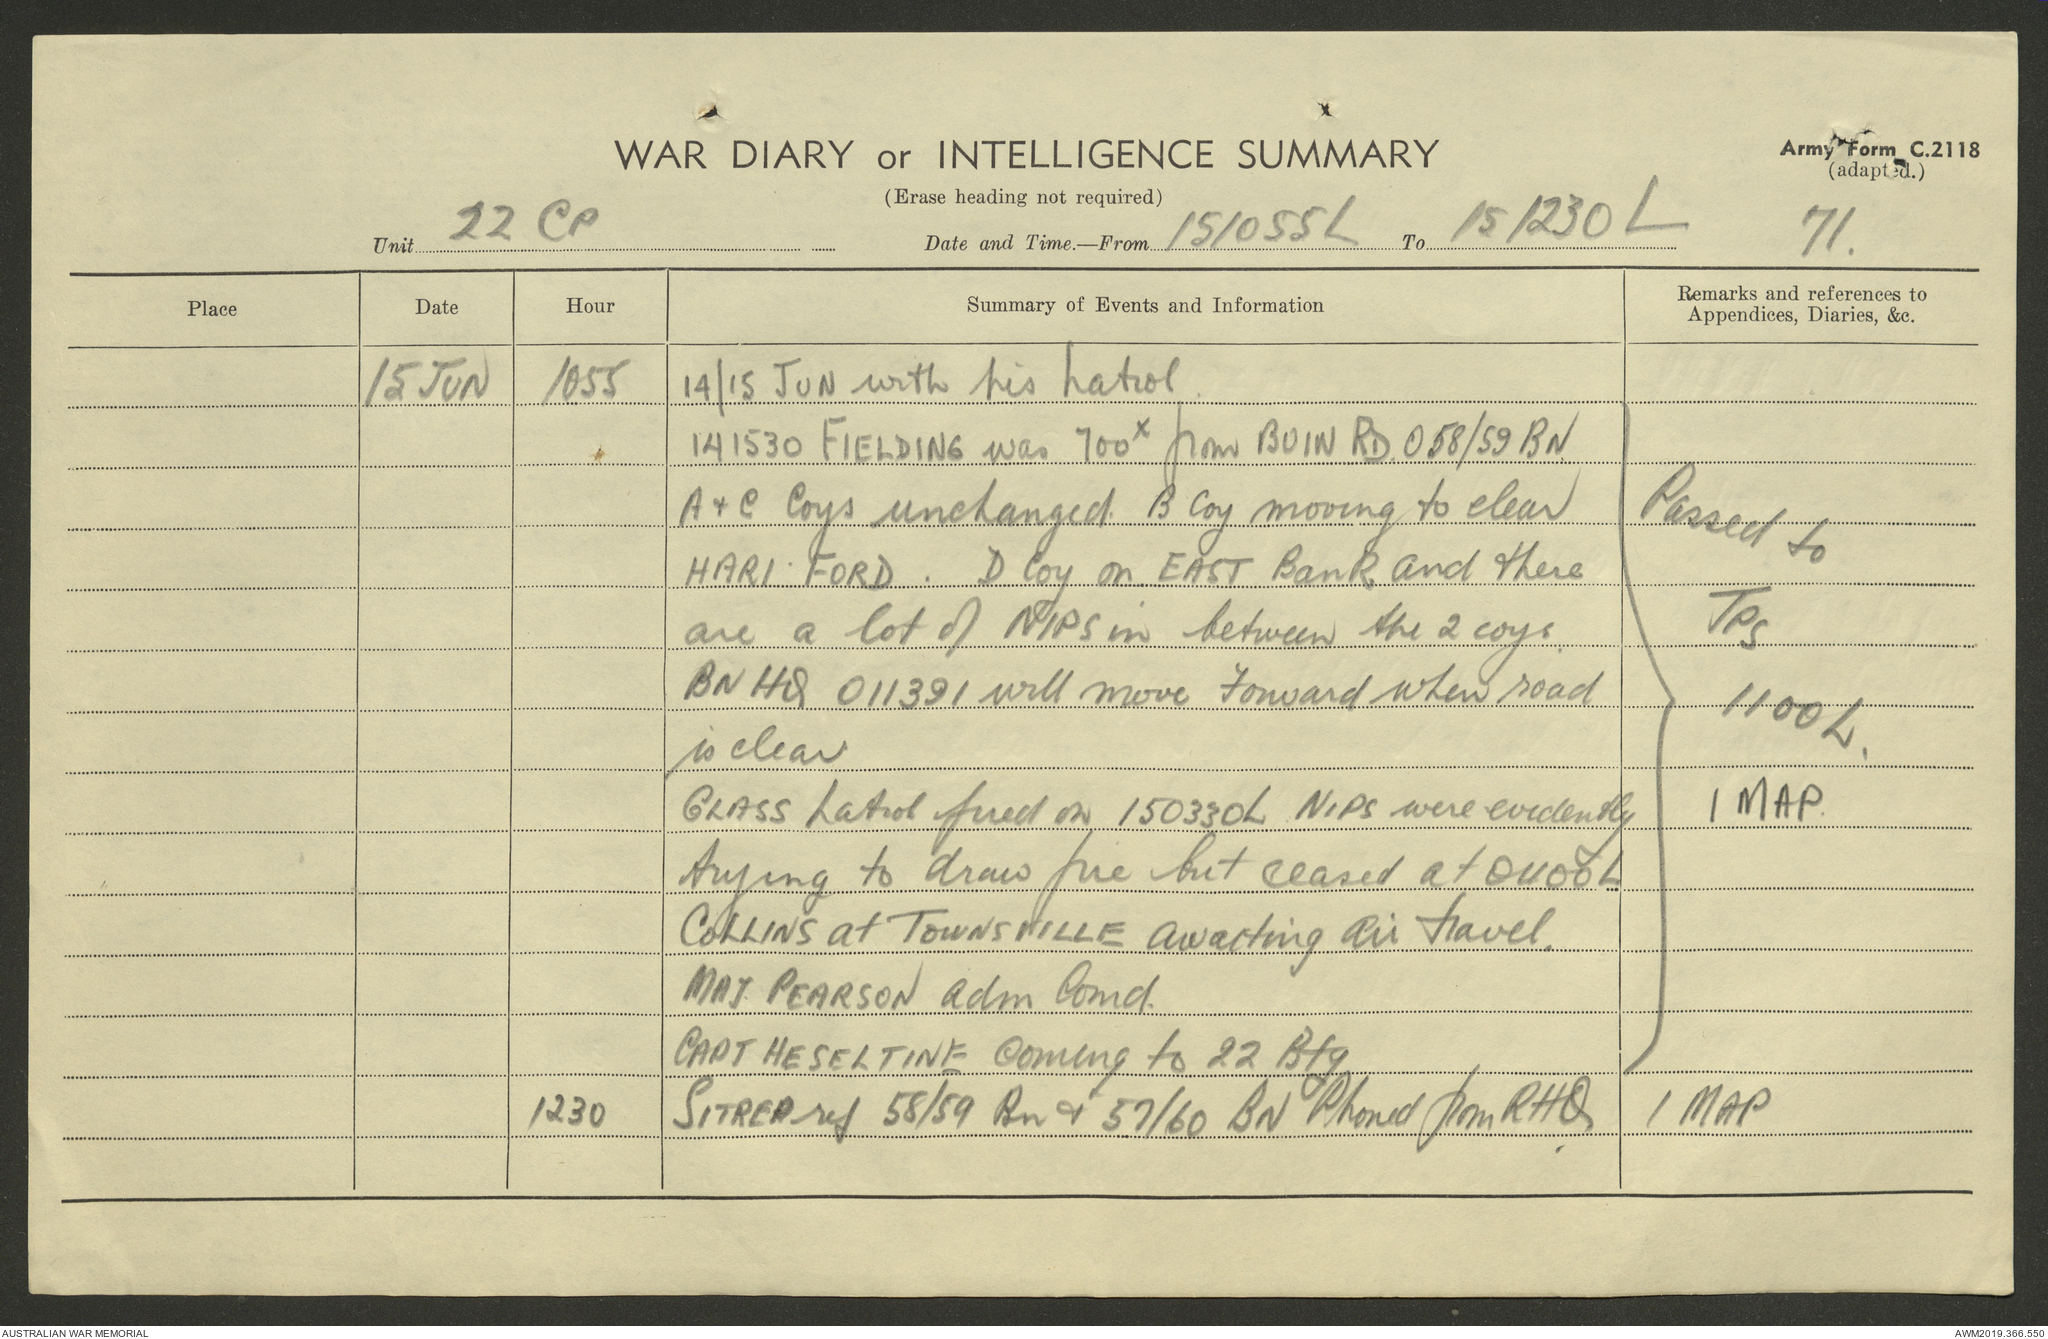 WAR DIARY or INTELLIGENCE SUMMARY
Army Form C.2118
(Erase heading not required)
(adapted.)
Unit 22 CP Date and Time.—From 151055L To 151230L 71.
Place Date Hour Summary of Events and Information Remarks and references to Appendices, Diaries, &c.
15 JUN 1055 14/15 JUN with his patrol.
141530 FIELDING was 700x from BUIN RD. O 58/59 BN
A + C Coys unchanged. B Coy moving to clear
HARI FORD. D Coy on EAST Bank and there
are a lot of NIPS in between the 2 coys.
BN HQ 011391 will move Forward when road
is clear
GLASS patrol fired on 150330L NIPS were evidently
trying to draw fire but ceased at 0400L
COLLINS at TOWNSVILLE awaiting air travel.
MAJ. PEARSON adm Comd.
CAPT HESELTINE coming to 22 Bty
Passed to
TPS
1100L.
1 MAP.
1230 SITREP ref 58/59 Bn & 57/60 BN Phoned from RHQ. 1 MAP
AUSTRALIAN WAR MEMORIAL
AWM2019.366.550